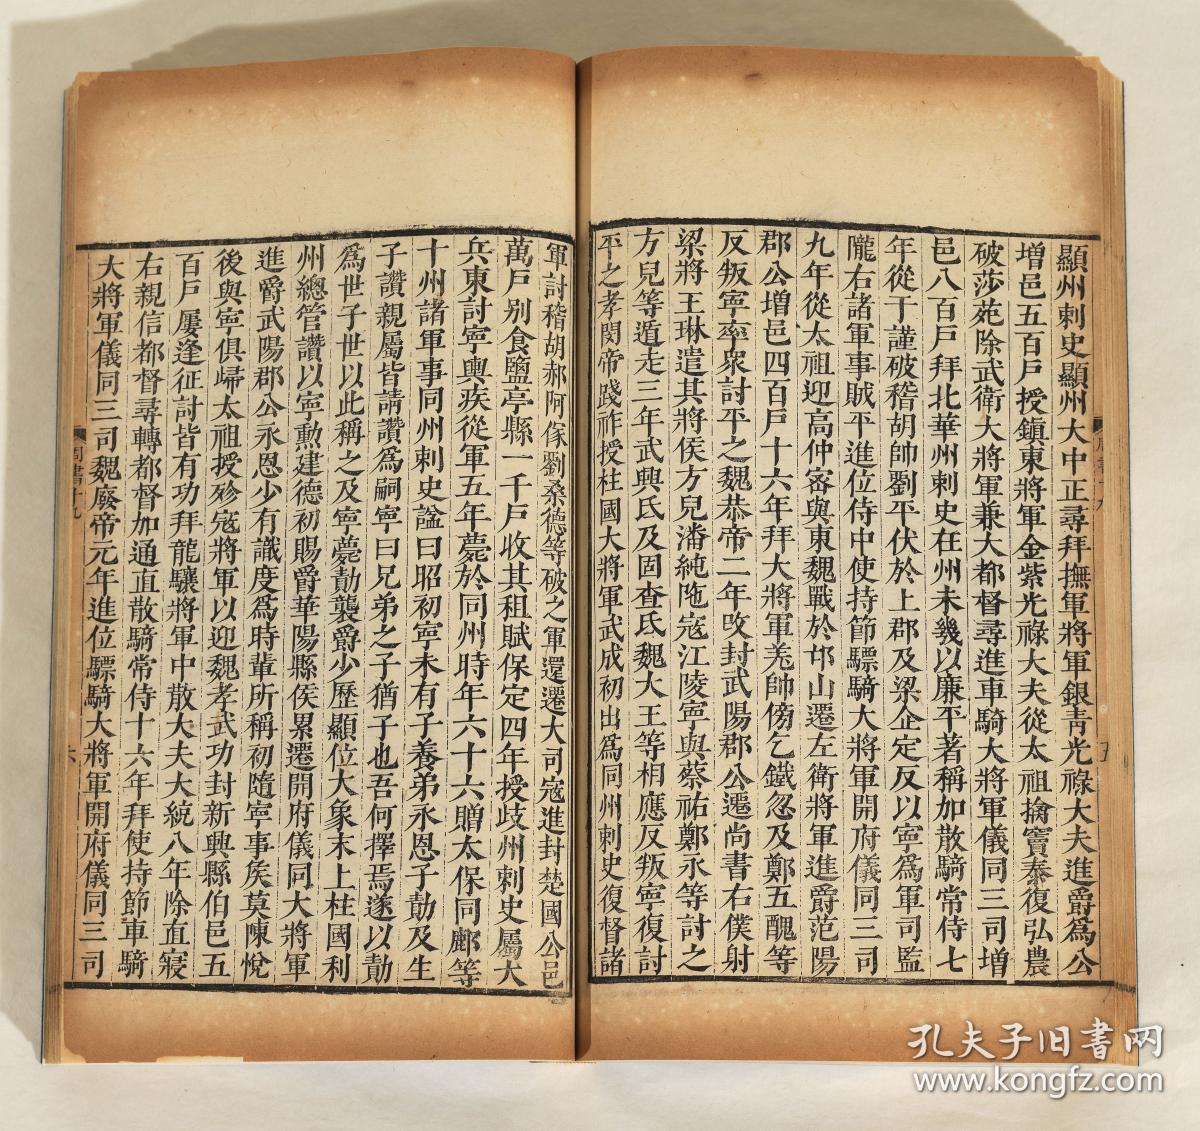 顯州刺史顯州大中正尋拜撫軍將軍銀青光祿大夫進爵為公
增邑五百戶授鎮東將軍金紫光祿大夫從太祖擒竇泰復弘農
破莎苑除武衛大將軍兼大都督尋進車騎大將軍儀同三司增
邑八百戶拜北華州刺史在州未幾以廉平著稱加散騎常侍七
年從于謹破稽胡帥劉平伏於上郡及梁企定反以寧為軍司監
隴右諸軍事賊平進位侍中使持節驃騎大將軍開府儀同三司
九年從太祖迎高仲密與東魏戰於邙山遷左衛將軍進爵范陽
郡公增邑四百戶十六年拜大將軍羌帥傍乞鐵忽及鄭五醜等
反叛寧率衆討平之魏恭帝二年攺封武陽郡公遷尚書右僕射
梁將王琳遣其將侯方兒潘純陁寇江陵寧與蔡祐鄭永等討之
方兒等遁走三年武興氐及固查氐魏大王等相應反叛寧復討
平之孝閔帝踐祚授柱國大將軍武成初出為同州刺史復督諸
周書十九
五
軍討稽胡郝阿保劉桑德等破之軍還遷大司寇進封楚國公邑
萬戶别食鹽亭縣一千戶收其租賦保定四年授歧州刺史屬大
兵東討寧輿疾從軍五年薨於同州時年六十六贈太保同鄜等
十州諸軍事同州刺史謚曰昭初寧未有子養弟永恩子勣及生
子讚親屬皆請讚為嗣寧曰兄弟之子猶子也吾何擇焉遂以勣
為世子世以此稱之及寧薨勣襲爵少歷顯位大象末上柱國利
州總管讚以寧勲建德初賜爵華陽縣侯累遷開府儀同大將軍
進爵武陽郡公永恩少有識度為時輩所稱初隨寧事侯莫陳悅
後與寧俱歸太祖授殄寇將軍以迎魏孝武功封新興縣伯邑五
百戶屢逢征討皆有功拜龍驤將軍中散大夫大統八年除直寢
右親信都督尋轉都督加通直散騎常侍十六年拜使持節車騎
大將軍儀同三司魏廢帝元年進位驃騎大將軍開府儀同三司
周書十九
六
孔夫子旧书网
www.kongfz.com